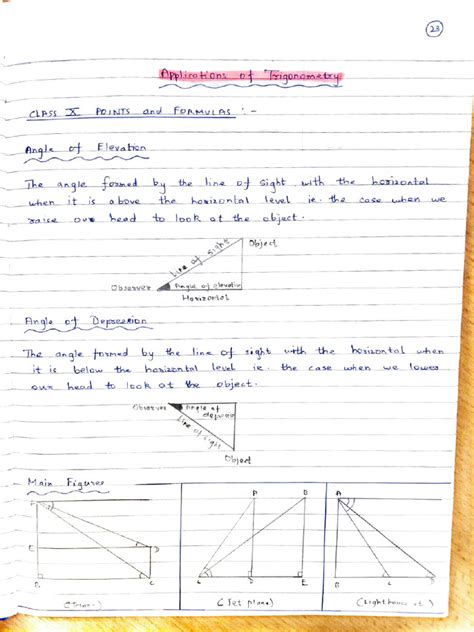 23
Applications of Trigonometry
CLASS X POINTS and FORMULAS :-
Angle of Elevation
The angle formed by the line of sight with the horizontal
when it is above the horizontal level ie. the case when we
raise our head to look at the object.
Object
Line of sight
Observer
Angle of elevation
Horizontal
Angle of Depression
The angle formed by the line of sight with the horizontal when
it is below the horizontal level ie. the case when we lower
our head to look at the object.
Observer
Angle of
depressi
Line of sight
Object
Main Figures
A
E
D
B
C
A
B
C
D
E
(Jet plane)
A
B
C
D
(Lighthouse